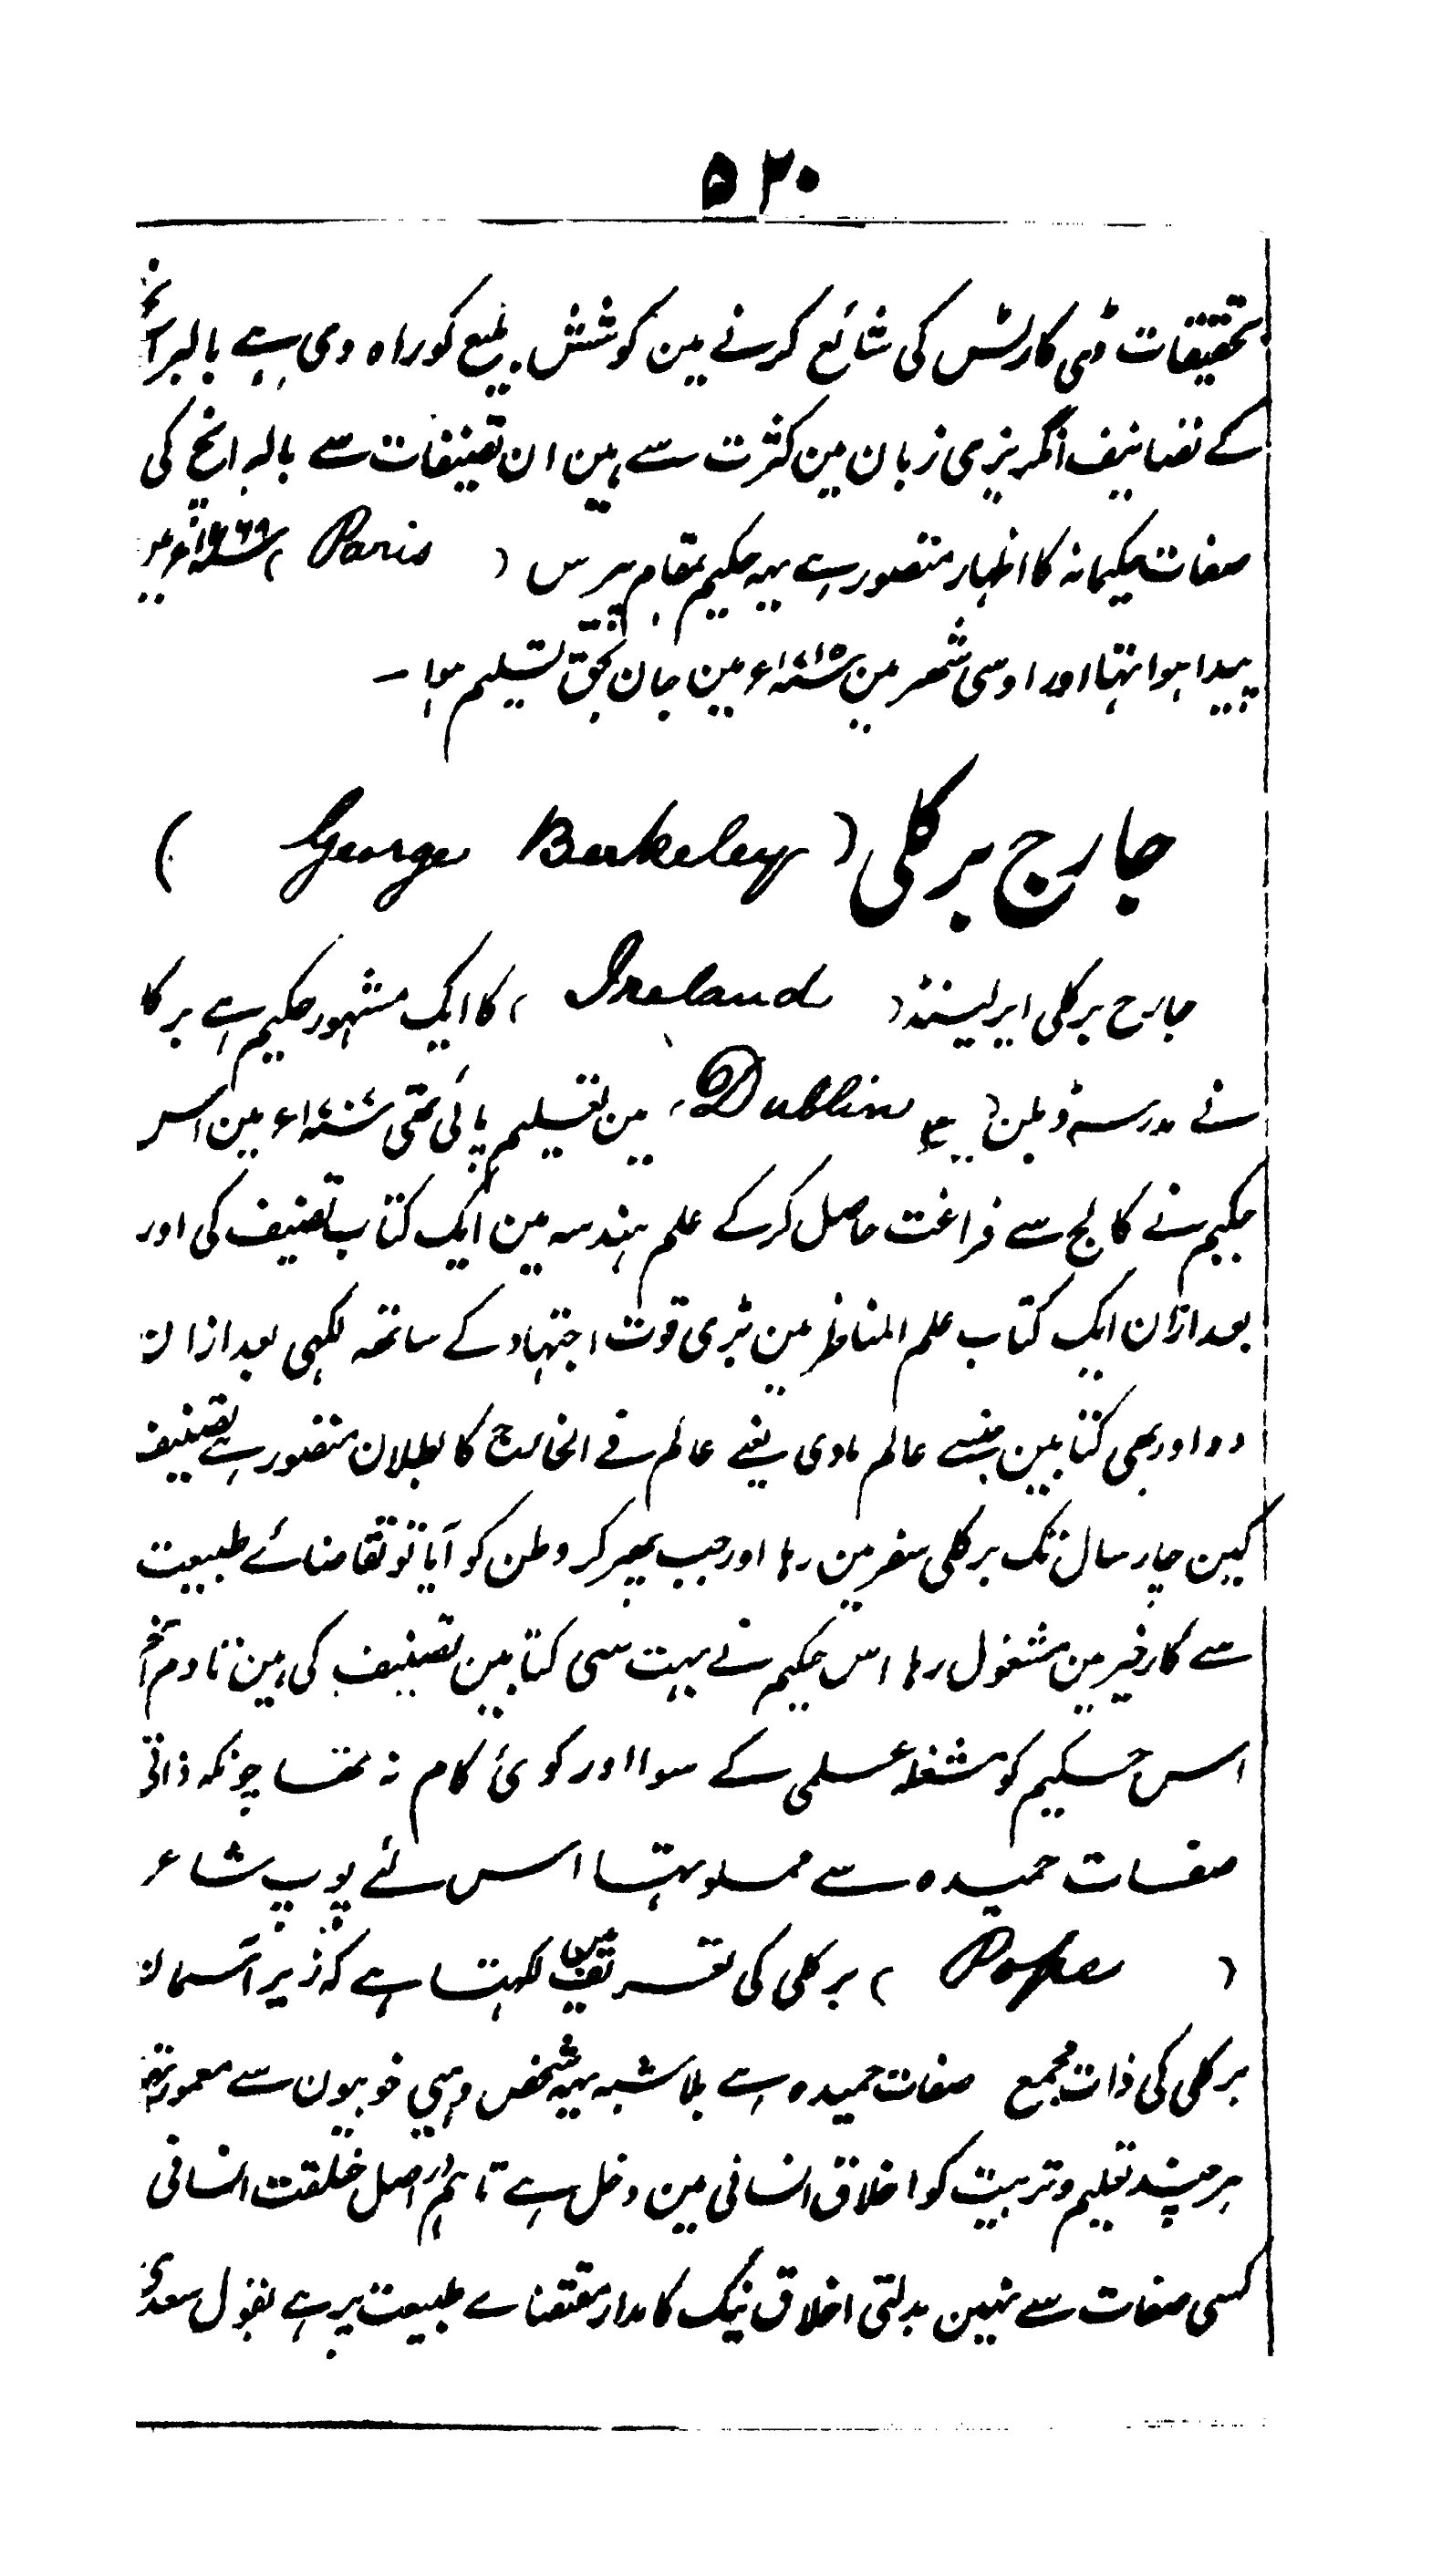 ۵۲۰
تحقیقات ڈی کارٹس کی شائع کرنے مین کوشش بلیغ کو راہ دی ہے بالبرانخ
کے تصانیف انگریزی زبان مین کثرت سے ہین ان تصنیفات سے بالبرانخ کی
صفات حکیمانہ کا اظہار متصور ہے یہہ حکیم بمقام پیرس ( Paris ) مین
پیدا ہوا تہا اور اوسی شہر مین ۱۷۱۵ء مین جان بحق تسلیم ہوا ۔
جارج برکلی ( George Berkeley )
جارج برکلی ایرلینڈ ( Ireland ) کا ایک مشہور حکیم ہے برکلی
نے مدرسہ ڈبلن ( Dublin ) مین تعلیم پائی تھی ۱۷۰۷ء مین اس
حکیم نے کالج سے فراغت حاصل کرکے علم ہندسہ مین ایک کتاب تصنیف کی اور
بعد ازان ایک کتاب علم المناظر مین بڑی قوت اجتہاد کے ساتھ لکہی بعد ازان
دو اور بھی کتابین جنسے عالم مادی یعنے عالم فے الخارج کا بطلان متصور ہے تصنیف
کین چار سال تک برکلی سفر مین رہا اور جب پھر کر وطن کو آیا تو تقاضائے طبیعت
سے کار خیر مین مشغول رہا اس حکیم نے بہت سی کتابین تصنیف کی ہین تا دم آخر
اس حکیم کو مشغلہ علمی کے سوا اور کوئی کام نہ تھا چونکہ ذاتی
صفات حمیدہ سے مملو تہا اس لئے پوپ شاعر
( Pope ) برکلی کی تعریف مین لکہتا ہے کہ زیر آسمان
برکلی کی ذات مجمع صفات حمیدہ ہے بلا شبہ یہہ شخص وہبی خوبیون سے معمور تھا
ہرچند تعلیم و تربیت کو اخلاق انسانی مین دخل ہے تاہم در اصل خلقت انسانی
کسی صفات سے نہین بدلتی اخلاق نیک کا مدار مقتضاے طبیعت پر ہے بقول سعدی